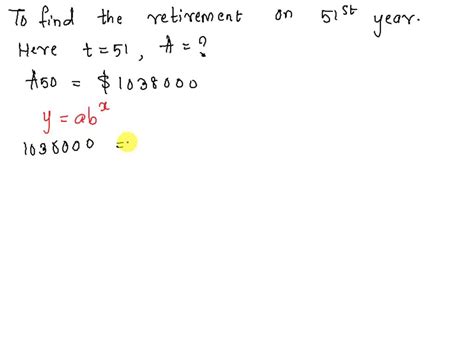 To find the retirement on 51st year.
Here t=51, A=?
A50 = $1038000
y = ab^x
1038000 =